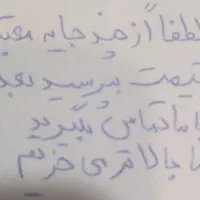 لطفاً از چند جایه معتبر
قیمت بپرسید بعد
با ما تماس بگیرید
ما بالاتر می خریم